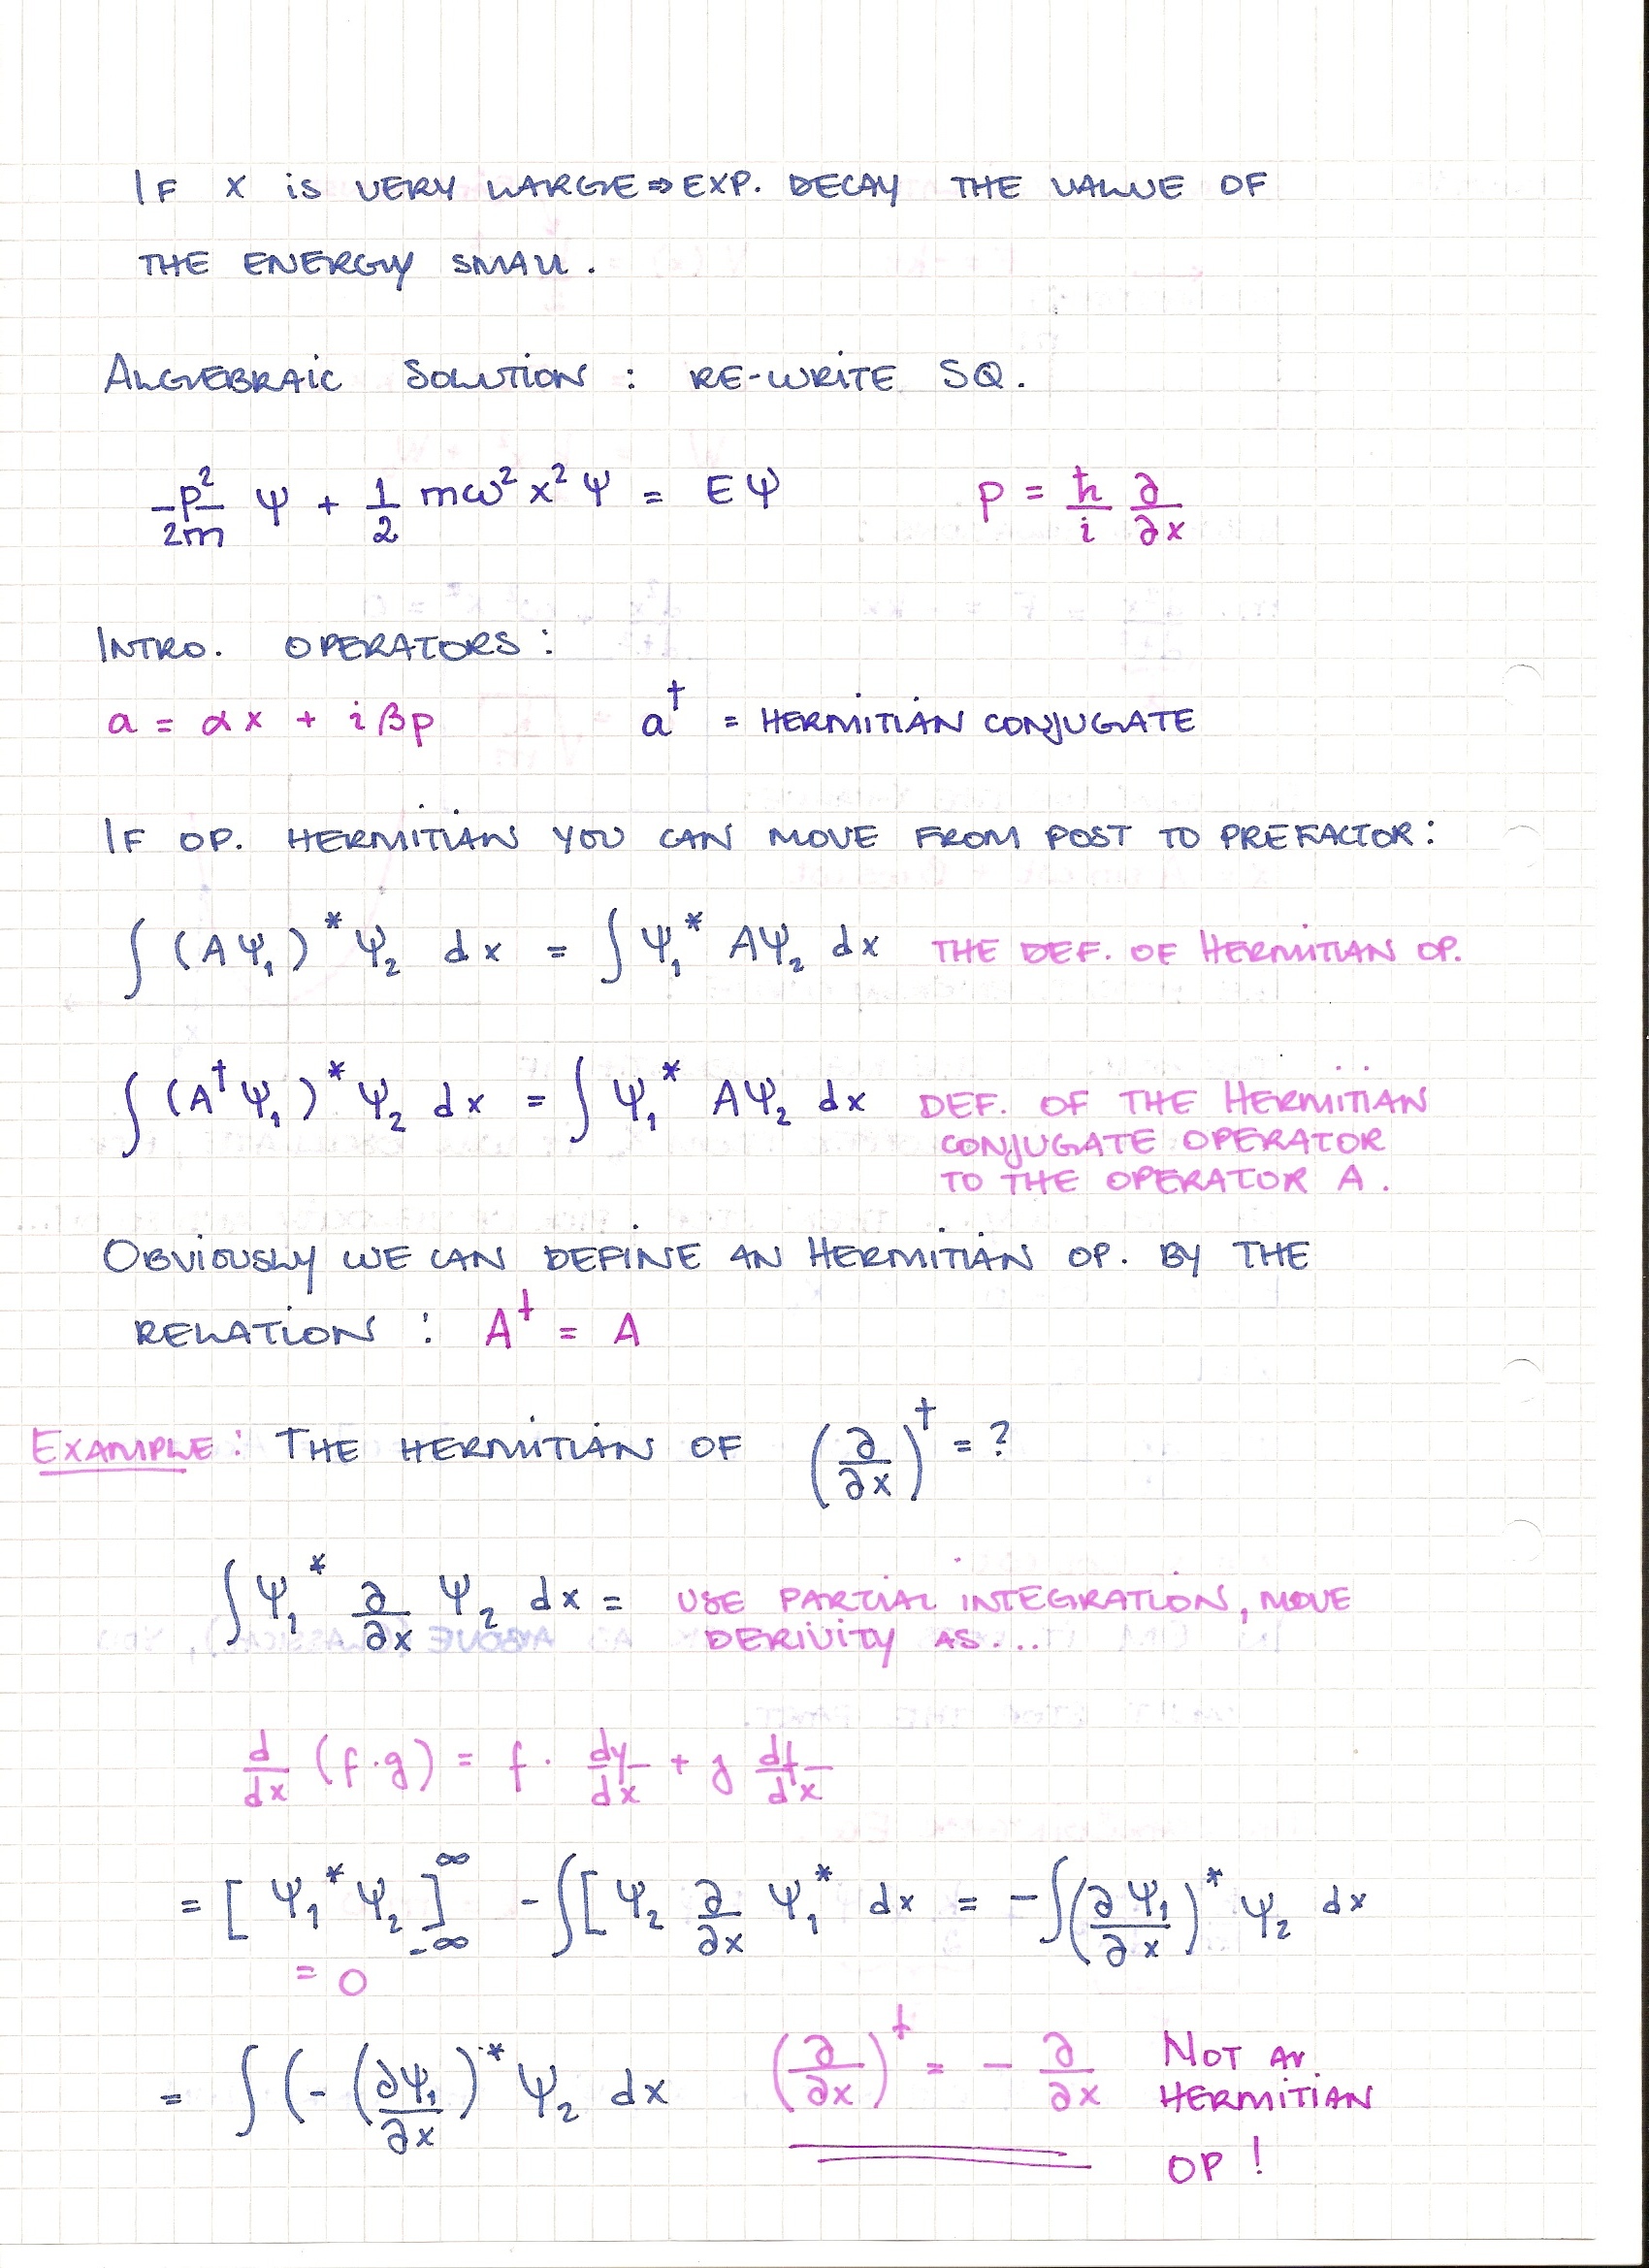 IF x is VERY LARGE ⇒ EXP. DECAY THE VALUE OF
THE ENERGY SMALL.
ALGEBRAIC SOLUTION : RE-WRITE SQ.
p²/2m ψ + 1/2 mω²x²ψ = Eψ    p = ħ/i ∂/∂x
INTRO. OPERATORS:
a = αx + iβp    a† = HERMITIAN CONJUGATE
IF OP. HERMITIAN YOU CAN MOVE FROM POST TO PREFACTOR:
∫(Aψ₁)*ψ₂ dx = ∫ψ₁* Aψ₂ dx THE DEF. OF HERMITIAN OP.
∫(A†ψ₁)*ψ₂ dx = ∫ψ₁* Aψ₂ dx DEF. OF THE HERMITIAN
CONJUGATE OPERATOR
TO THE OPERATOR A.
OBVIOUSLY WE CAN DEFINE AN HERMITIAN OP. BY THE
RELATION : A† = A
EXAMPLE: THE HERMITIAN OF (∂/∂x)† = ?
∫ψ₁* ∂/∂x ψ₂ dx = USE PARTIAL INTEGRATION, MOVE
DERIVITY AS...
d/dx (f·g) = f · dg/dx + g df/dx
= [ψ₁*ψ₂]∞-∞ - ∫[ψ₂ ∂/∂x ψ₁* dx = -∫(∂ψ₁/∂x)* ψ₂ dx
= 0
= ∫(-(∂ψ₁/∂x)* ψ₂ dx    (∂/∂x)† = - ∂/∂x    NOT AN
HERMITIAN
OP!